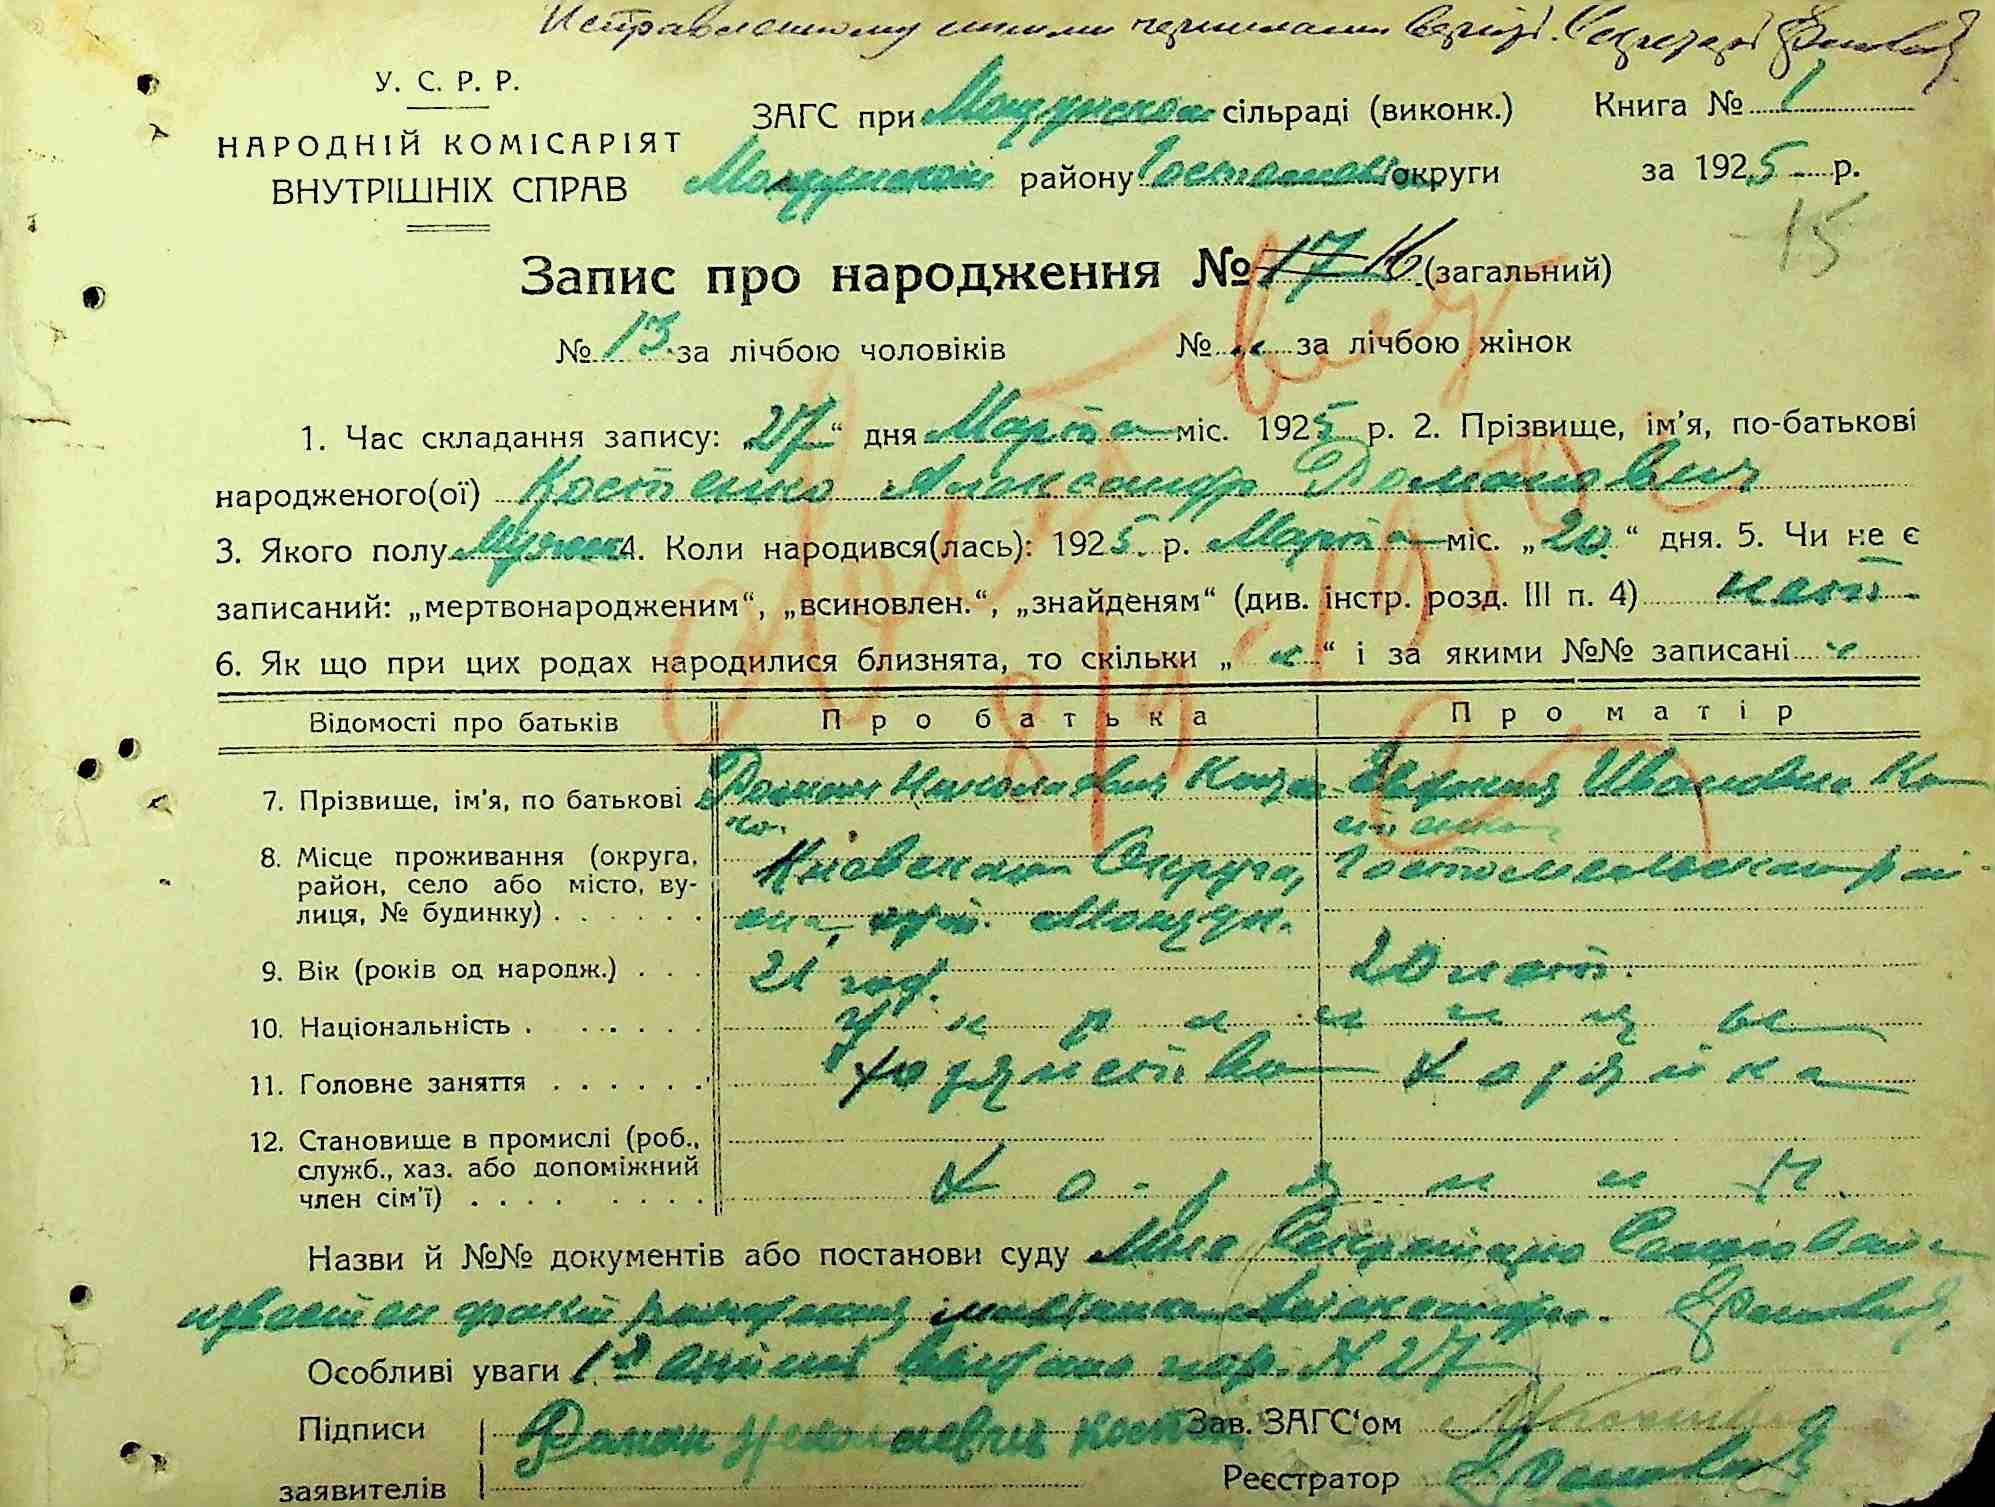 Исправленному синими чернилами верить. Секретарь
У. С. Р. Р.
НАРОДНІЙ КОМІСАРІЯТ
ВНУТРІШНІХ СПРАВ
ЗАГС при Мощунской сільраді (виконк.) Книга № 1
Мощунской району Гостомель округи за 1925 р.
15
Запис про народження № 17 16 (загальний)
№ 13 за лічбою чоловіків № „ за лічбою жінок
1. Час складання запису: „27“ дня Марта міс. 1925 р. 2. Прізвище, ім'я, по-батькові
народженого(ої) Костенко Александр Романович
3. Якого полу Мужск 4. Коли народився(лась): 1925 р. Марта міс. „20“ дня. 5. Чи не є
записаний: „мертвонародженим“, „всиновлен.“, „знайденям“ (див. інстр. розд. III п. 4) нет
6. Як що при цих родах народилися близнята, то скільки „ “ і за якими №№ записані
Відомості про батьків Про батька Про матір
7. Прізвище, ім'я, по батькові Роман Николаевич Ивановна Ко
стенко
8. Місце проживання (округа, Киевская Округа, Гостомельская рай
район, село або місто, ву-
лиця, № будинку) она, Мощун.
9. Вік (років од народж.) 21 год. 20 лет.
10. Національність Украинцы
11. Головне заняття Хозяйство Хозяйка
12. Становище в промислі (роб.,
служб., хаз. або допоміжний
член сім'ї) Хозяин
Назви й №№ документів або постанови суду Мне Секретарю
факт рождения Александра.
Особливі уваги 1й № 27
Підписи Роман Николаевич Зав. ЗАГС'ом
заявителів Реєстратор